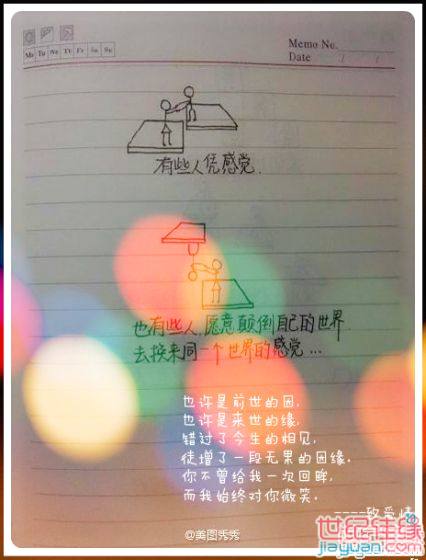 Memo No.
Mo Tu We Th Fr Sa Su
Date / /
有些人凭感觉.
也有些人,愿意颠倒自己的世界
去换来同一个世界的感觉...
也许是前世的因,
也许是来世的缘,
错过了今生的相见,
徒增了一段无果的因缘。
你不曾给我一次回眸,
而我始终对你微笑.
----致爱情
@美图秀秀
世纪佳缘
jiayuan.com